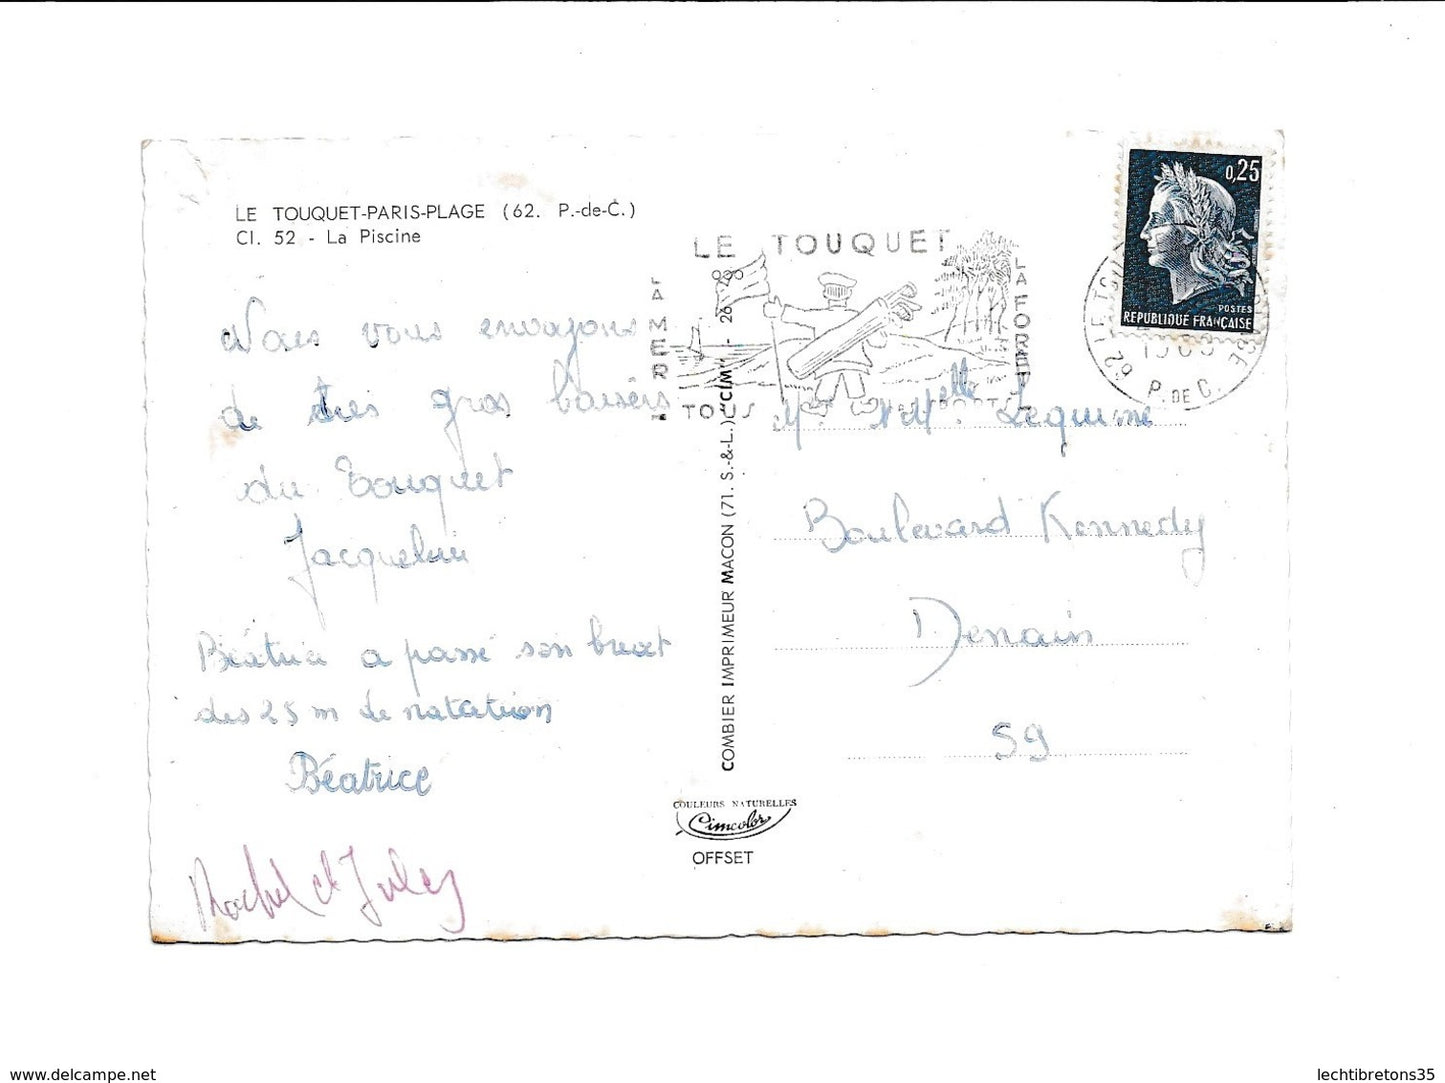 LE TOUQUET-PARIS-PLAGE (62. P.-de-C.)
Cl. 52 - La Piscine
Nous vous envoyons
de très gros baisers
du Touquet
Jacqueline
Béatrice a passé son brevet
des 25 m de natation
Béatrice
Rachel et Jules
COMBIER IMPRIMEUR MACON (71. S.-&-L.) "CIM" - 26
COULEURS NATURELLES
Cimcolor
OFFSET
LE TOUQUET
LA MER
LA FORET
TOUS
0,25
POSTES
REPUBLIQUE FRANÇAISE
62 LE TOU
P. DE C.
Mr. Melle Lequime
Boulevard Kennedy
Denain
59
delcampe.net
lechtibretons35